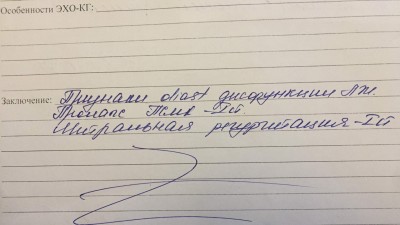 Особенности ЭХО-КГ:
Заключение: Признаки diast дисфункции ЛЖ.
Пролапс ПСМК -Iст.
Митральная регургитация -Iст